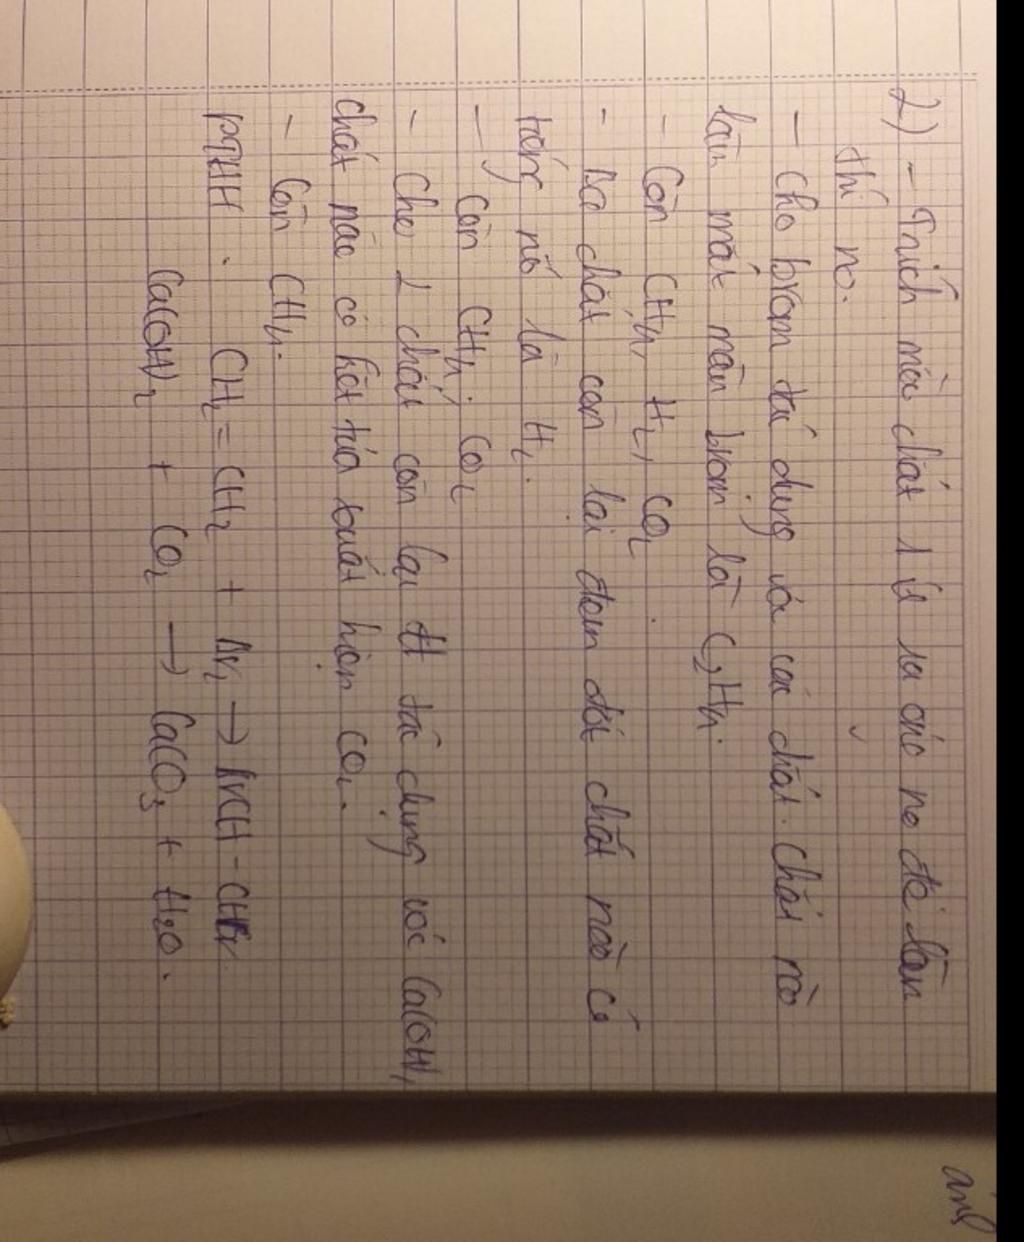 2) - Trích mỗi chất 1 ít ra ống no để làm
thí no.
- Cho brom tác dụng với các chất. Chất nào
làm mất màu brom là C2H4.
- Còn CH4, H2, CO2
- Ba chất còn lại đem đốt chất nào có
tiếng nổ là H2.
- Còn CH4, CO2
- Cho 2 chất còn lại tác dụng với Ca(OH)2
chất nào có kết tủa xuất hiện CO2.
- Còn CH4.
PTHH. CH2 = CH2 + Br2 → BrCH - CHBr
Ca(OH)2 + CO2 → CaCO3 + H2O.